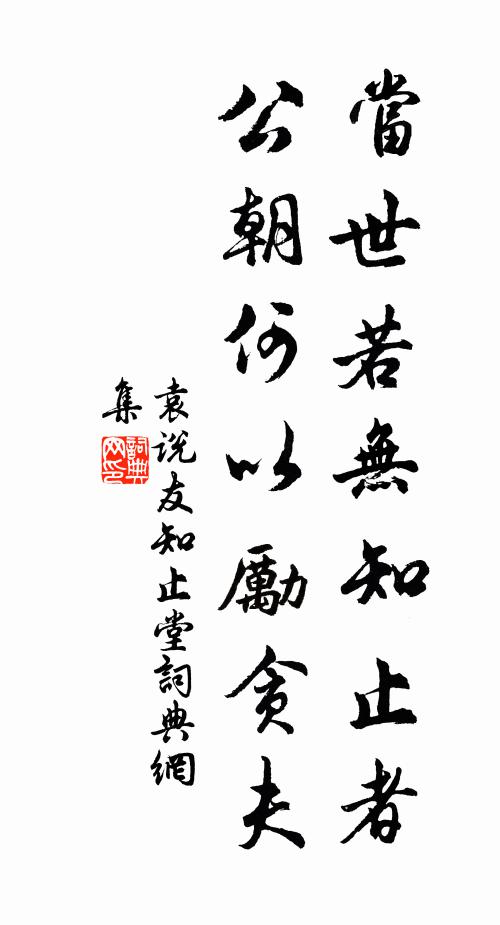 當世若無知止者
公朝何以勵貪夫
袁説友知止堂詞典網
集
詞典
网印